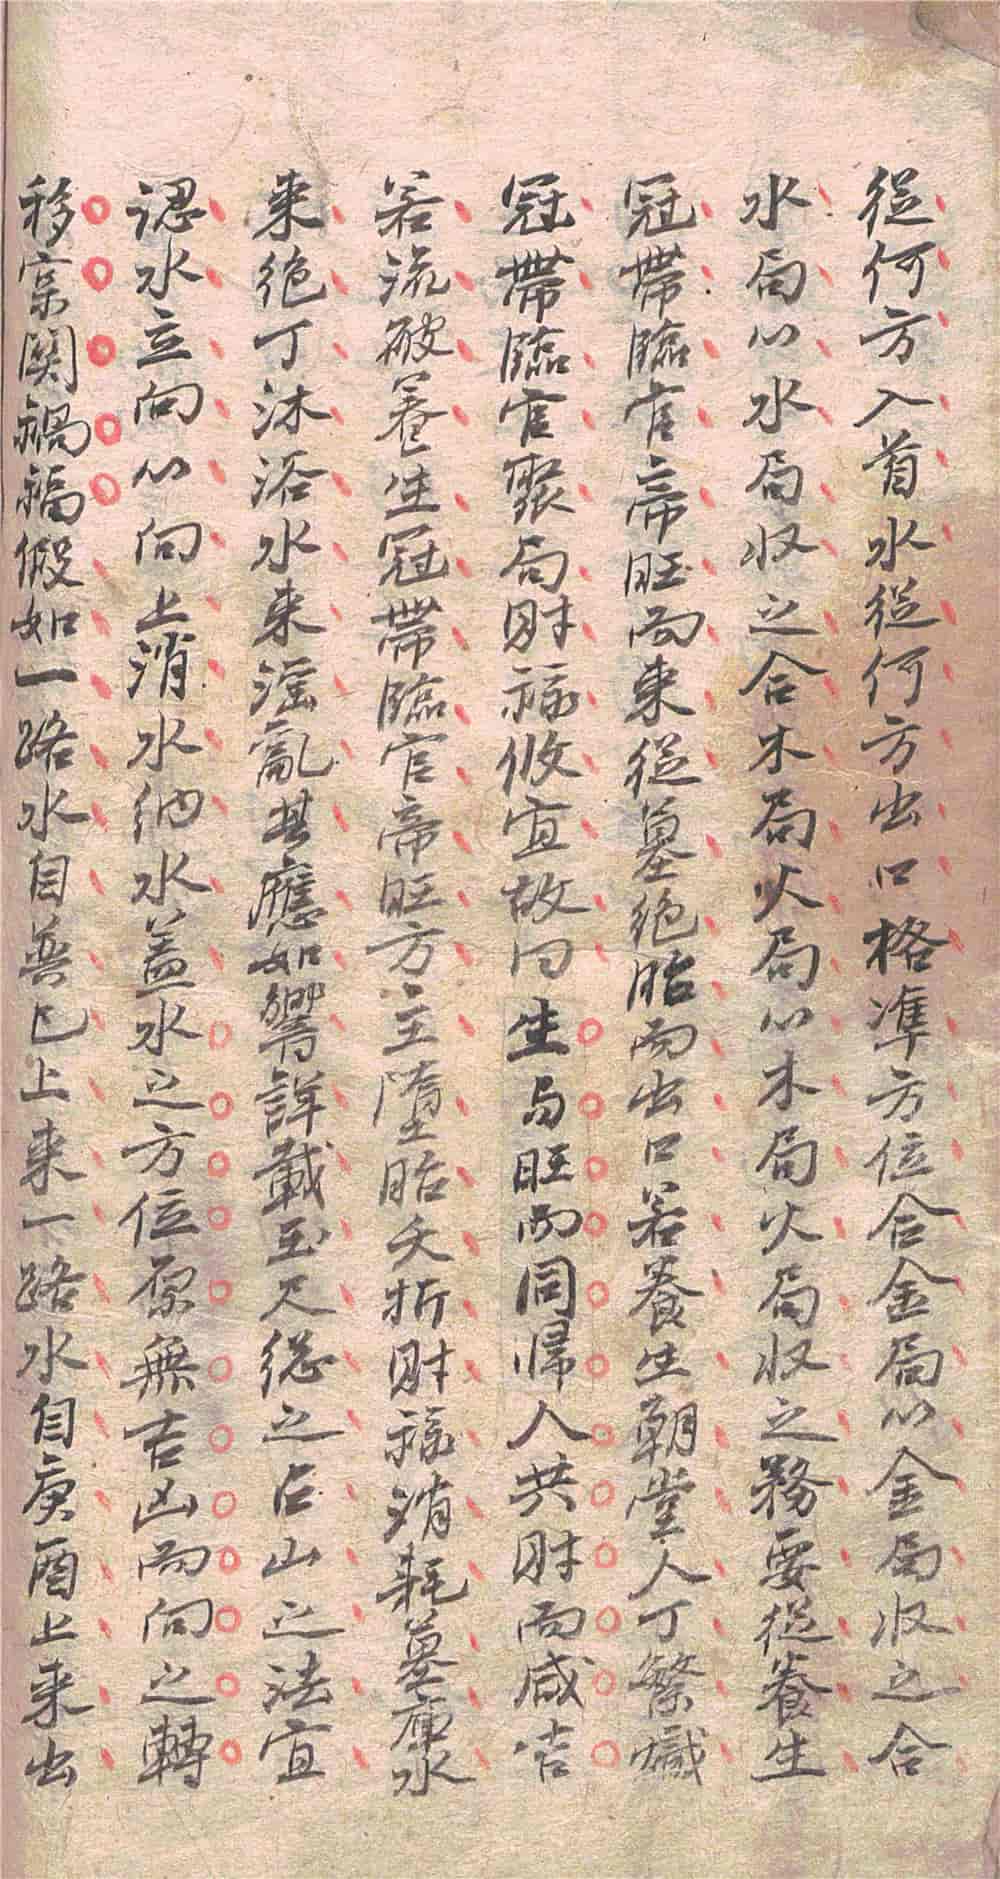 從何方入首水從何方出口格準方位合金局以金局収之合
水局以水局収之合木局火局以木局火局収之務要從養生
冠帶臨官帝旺而來從墓绝胎而出口若養生朝堂人丁繁
冠帶臨官聚局財祿攸宜故曰生与旺而同帰人共財而咸吉
若流破養生冠帶臨官帝旺方主墮胎夭折財祿消耗墓庫水
来绝丁沐浴水来淫亂其應如響詳載玉尺総之占山之法宜
認水立向以向上消水纳水盖水之方位原無吉凶而向之轉
移宗関禍福假如一路水自巽巳上来一路水自庚酉上来出